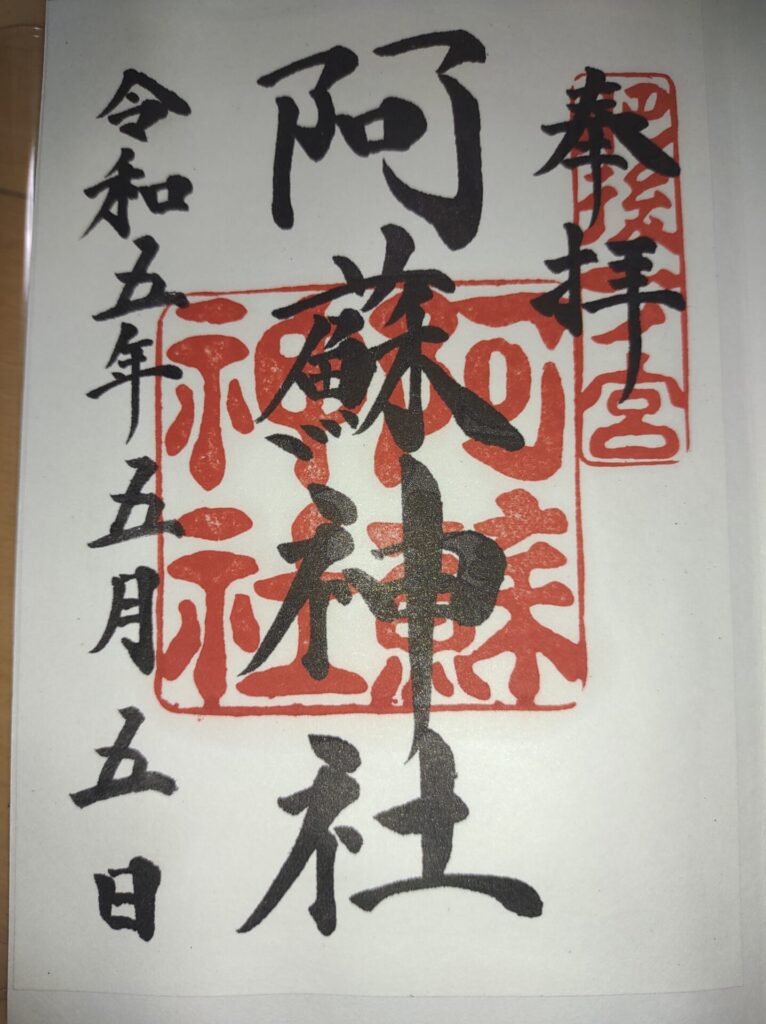 奉拝
肥後一宮
阿蘇神社
阿蘇神社
令和五年五月五日